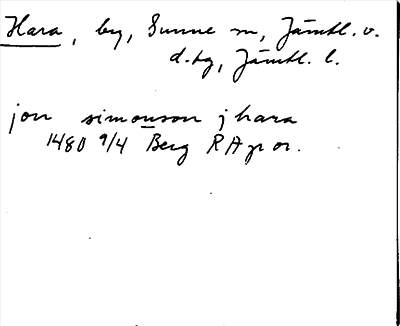 Hara, by, Sunne sn, Jämtl. v.
d.tg, Jämtl. l.
jon simonson j hara
1480 9/4 Berg RAp or.